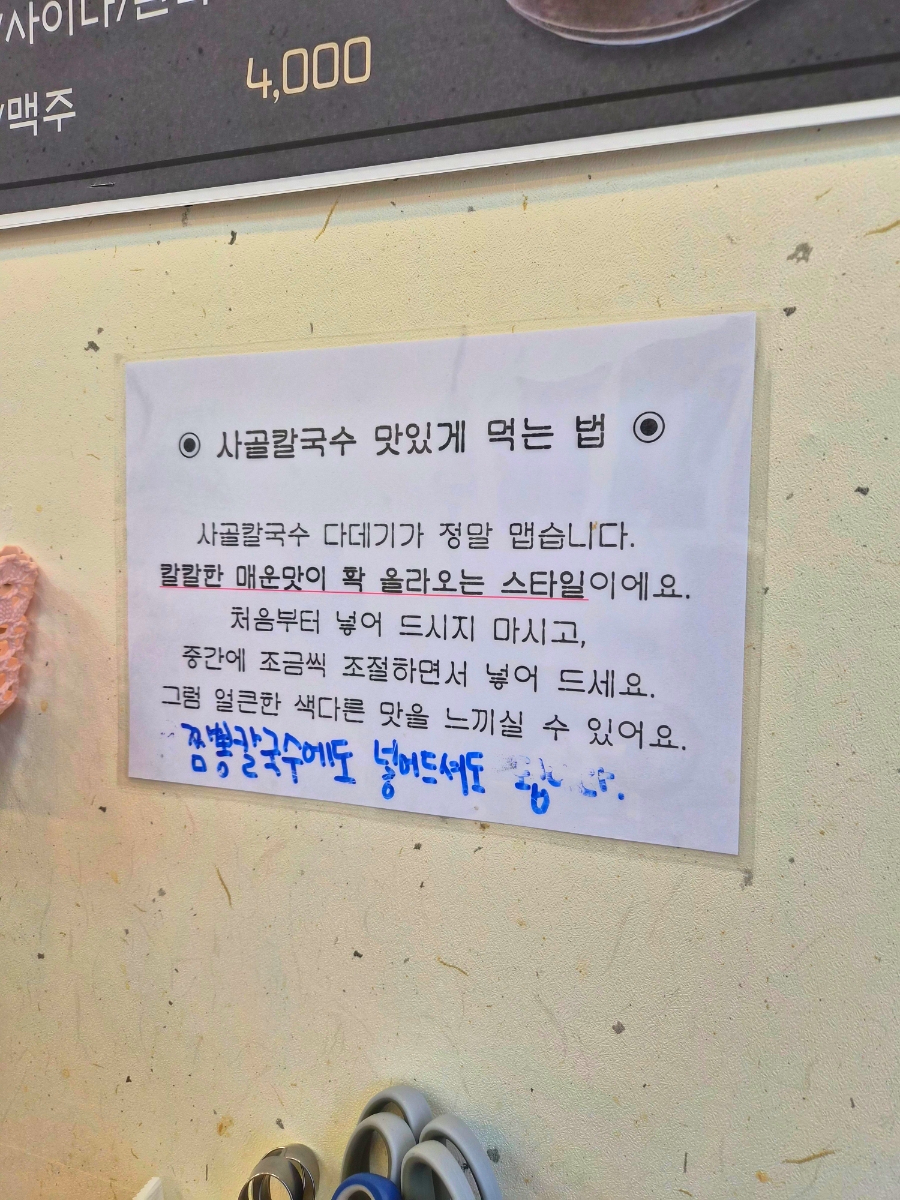 /사이다/환타
4,000
/맥주
◉ 사골칼국수 맛있게 먹는 법 ◉
사골칼국수 다데기가 정말 맵습니다.
칼칼한 매운맛이 확 올라오는 스타일이에요.
처음부터 넣어 드시지 마시고,
중간에 조금씩 조절하면서 넣어 드세요.
그럼 얼큰한 색다른 맛을 느끼실 수 있어요.
짬뽕칼국수에도 넣어드셔도